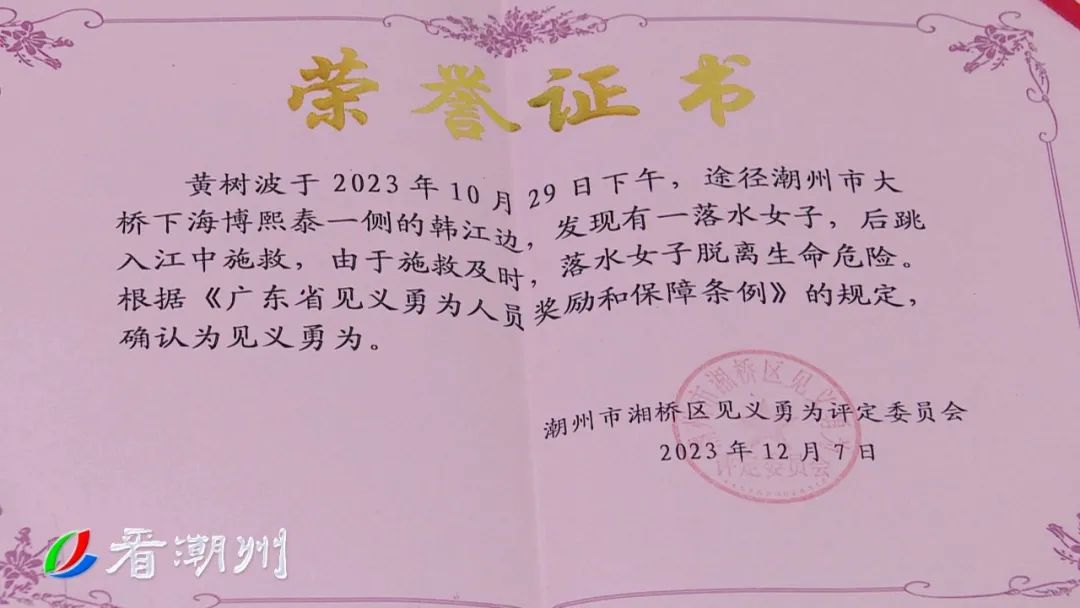 荣誉证书
黄树波于2023年10月29日下午，途径潮州市大
桥下海博熙泰一侧的韩江边，发现有一落水女子，后跳
入江中施救，由于施救及时，落水女子脱离生命危险。
根据《广东省见义勇为人员奖励和保障条例》的规定，
确认为见义勇为。
潮州市湘桥区见义勇为评定委员会
2023年12月7日
市湘桥区见义
评定委员会
看潮州